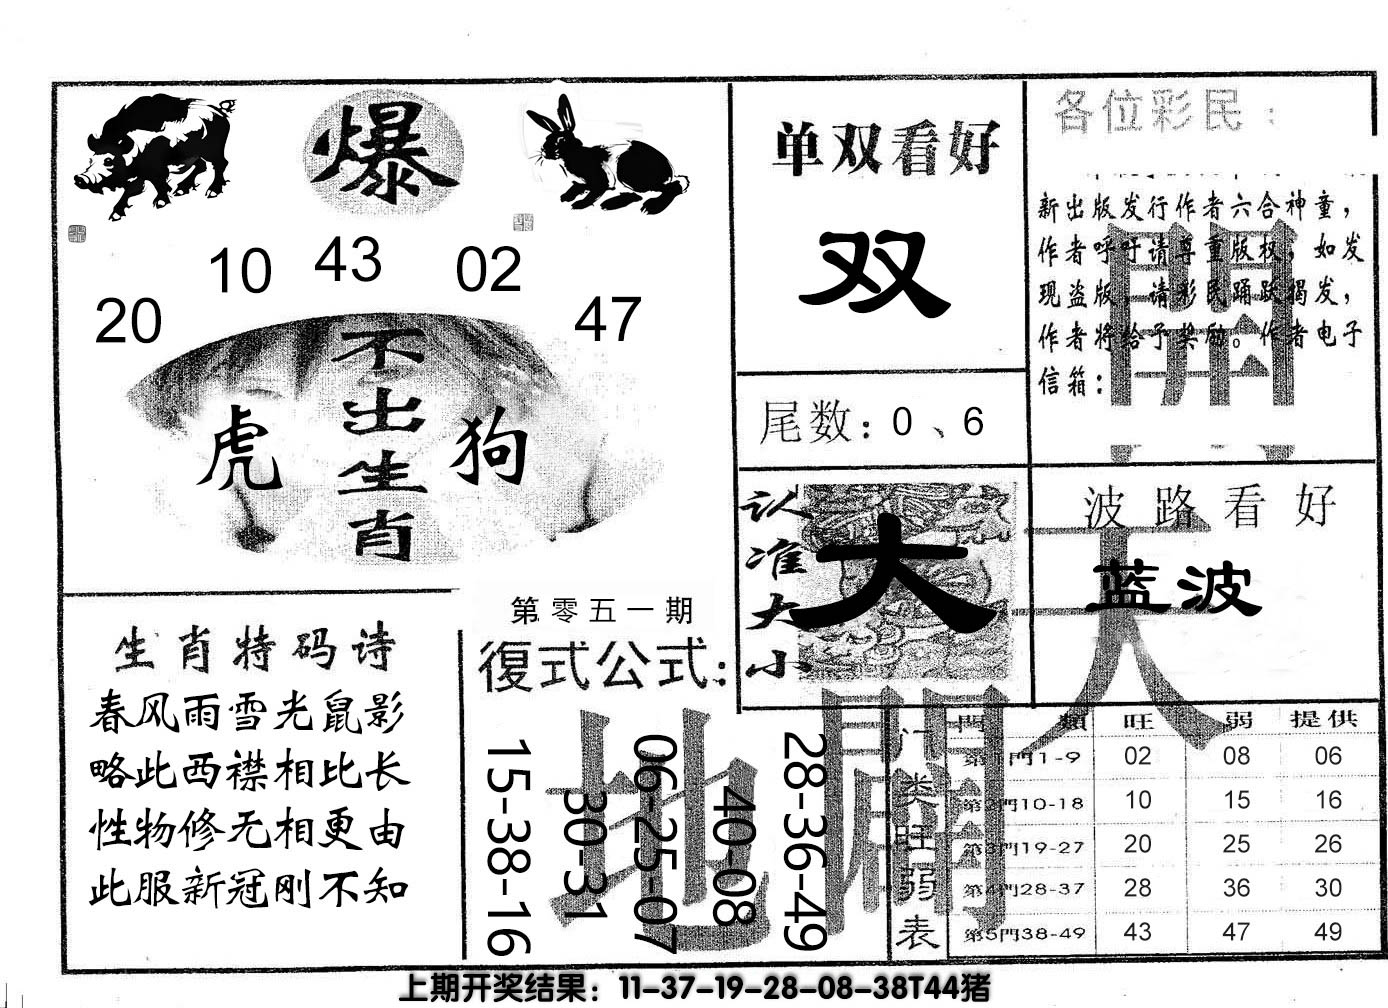 爆
10 43 02
20 47
不出生肖
虎 狗
生肖特码诗
春风雨雪光鼠影
略此西襟相比长
性物修无相更由
此服新冠刚不知
第零五一期
復式公式：
15-38-16
30-31
06-25-07
40-08
28-36-49
单双看好
双
尾数：0、6
认准大小
大
各位彩民：
新出版发行作者六合神童，
作者呼吁请尊重版权，如发
现盗版，请彩民踊跃揭发，
作者将给予奖励。作者电子
信箱：
波路看好
蓝波
天
地
開
開
门类旺弱表
門類 旺 弱 提供
第1門1-9 02 08 06
第2門10-18 10 15 16
第3門19-27 20 25 26
第4門28-37 28 36 30
第5門38-49 43 47 49
上期开奖结果：11-37-19-28-08-38T44猪